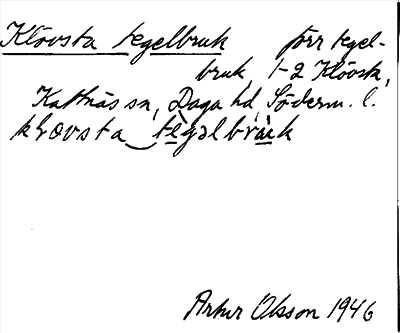 Klövsta tegelbruk förr tegel-
bruk, 1-2 Klövsta,
Kattnäs sn, Daga hd, Söderm. l.
klœvsta tègəlbrùk
Artur Olsson 1946